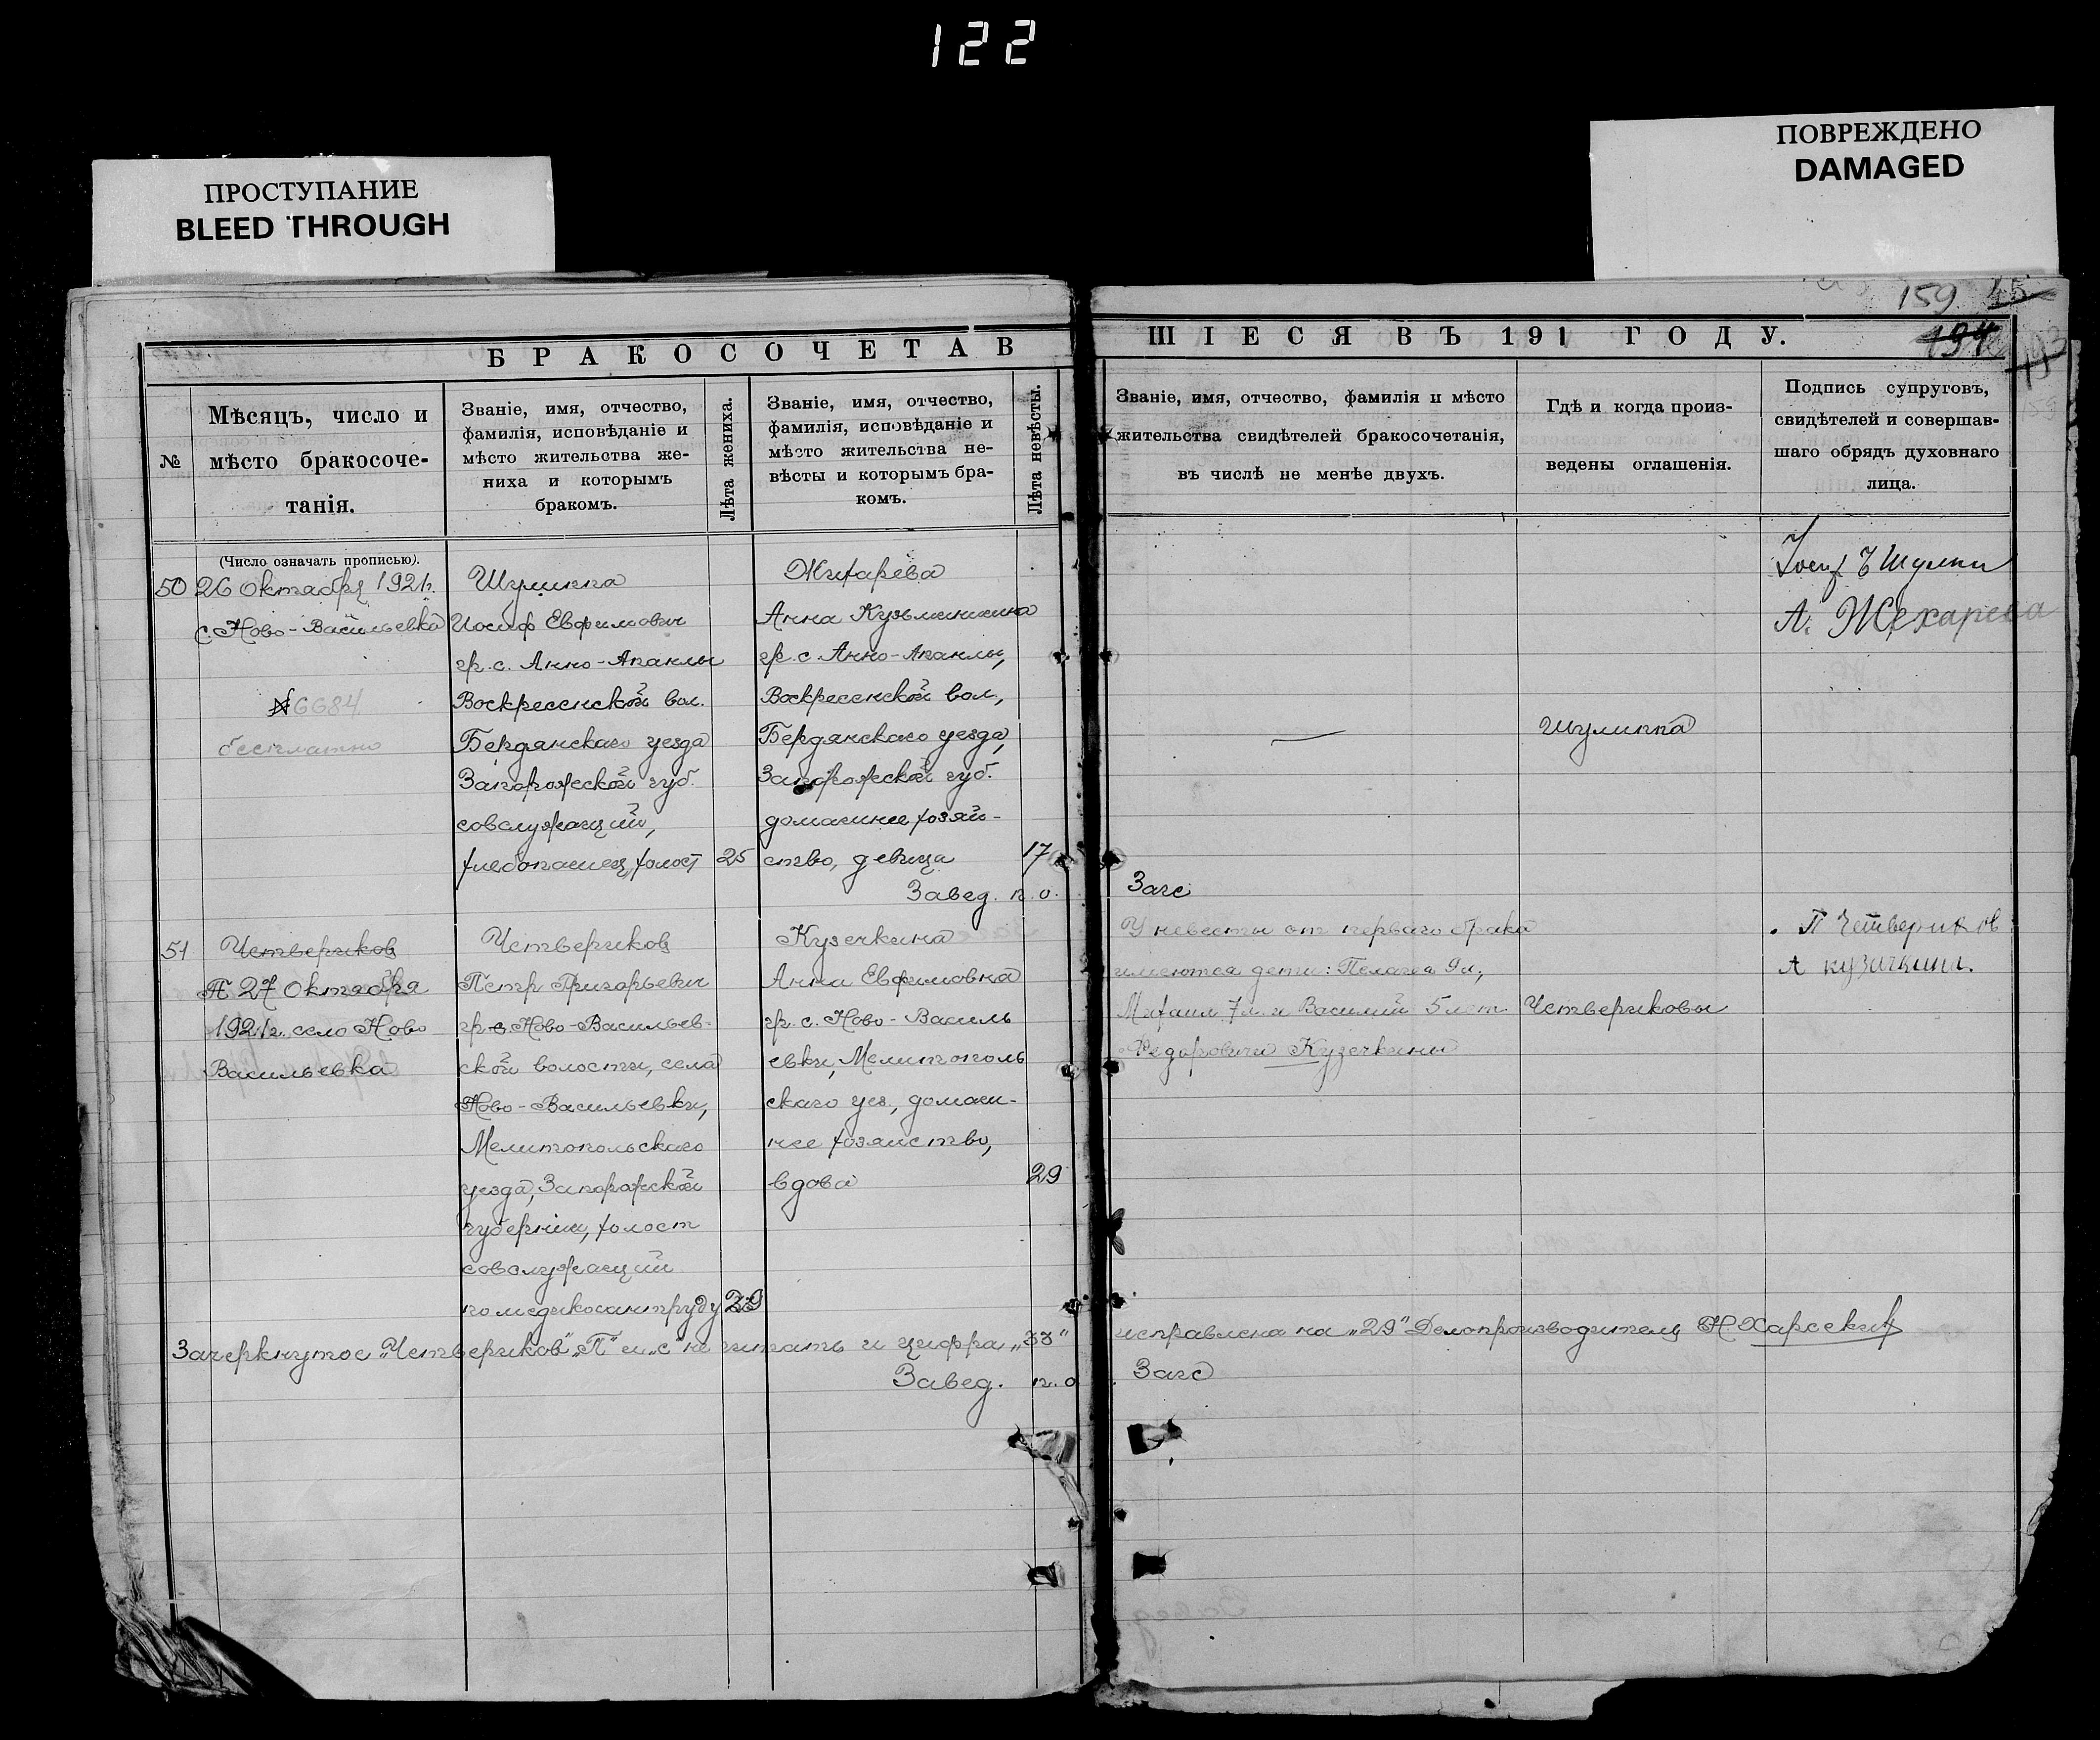 122
ПРОСТУПАНИЕ
BLEED THROUGH
ПОВРЕЖДЕНО
DAMAGED
159 45
194
193
БРАКОСОЧЕТАВ
ШІЕСЯ ВЪ 191 ГОДУ.
№
Мѣсяцъ, число и
мѣсто бракосоче-
танія.
Званіе, имя, отчество,
фамилія, исповѣданіе и
мѣсто жительства же-
ниха и которымъ
бракомъ.
Лѣта жениха.
Званіе, имя, отчество,
фамилія, исповѣданіе и
мѣсто жительства не-
вѣсты и которымъ бра-
комъ.
Лѣта невѣсты.
Званіе, имя, отчество, фамилія и мѣсто
жительства свидѣтелей бракосочетанія,
въ числѣ не менѣе двухъ.
Гдѣ и когда произ-
ведены оглашенія.
Подпись супруговъ,
свидѣтелей и совершав-
шаго обрядъ духовнаго
лица.
(Число означать прописью).
50
26 Октября 1921г.
с. Ново-Васильевка
№ 6684
бесплатно
Шулиппа
Иосиф Евфимович
гр. с. Анно-Апанлы
Воскресенской вол.
Бердянскаго уезда
Запорожской губ.
совслужащий,
хлебопашец, холост
25
Жихарева
Анна Кузьминична
гр. с. Анно-Апанлы,
Воскресенской вол,
Бердянскаго уезда,
Запорожской губ.
домашнее хозяй-
ство, девица
17
Завед. п. о. Загс
Шулиппа
А. Жехарева
51
Четвериков
П 27 Октября
1921г. село Ново
Васильевка
Четвериков
Петр Григорьевич
гр. с Ново-Васильев-
ской волости, села
Ново-Васильевки,
Мелитопольскаго
уезда, Запорожской
губернии, холост
совслужащий
по медикосантруду 29
Кузечкина
Анна Евфимовна
гр. с. Ново-Василь
евки, Мелитополь
скаго уез., домаш-
нее хозяиство,
вдова
29
У невесты от перваго брака
имеются дети: Пелагея 9 л.,
Михаил 7 л. и Василий 5 лет
Федоровичи Кузечкины
Четвериковы
П Четвериков
А кузичкина.
Зачеркнутое „Четвериков" „П" и „с" не читать и цифра „33" исправлена на „29" Делопроизводитель Н. Харсекин
Завед. п. о. Загс